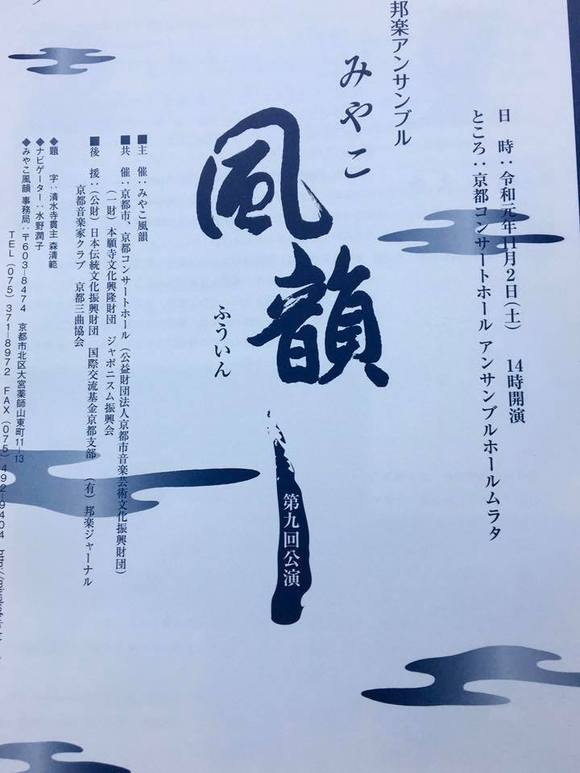 日　時：令和元年11月2日(土)　14時開演
ところ：京都コンサートホール アンサンブルホールムラタ
邦楽アンサンブル
みやこ
風韻
ふういん
第九回公演
■主　催：みやこ風韻
■共　催：京都市、京都コンサートホール（公益財団法人京都市音楽芸術文化振興財団）
（一財）本願寺文化興隆財団　ジャポニスム振興会
■後　援：（公財）日本伝統文化振興財団　国際交流基金京都支部　（有）邦楽ジャーナル
京都音楽家クラブ　京都三曲協会
◆題　字：清水寺貫主 森清範
◆ナビゲーター：水野潤子
◆みやこ風韻 事務局：〒603-8474　京都市北区大宮薬師山東町11-13
TEL (075) 371-8972　FAX (075) 492-9404　http://